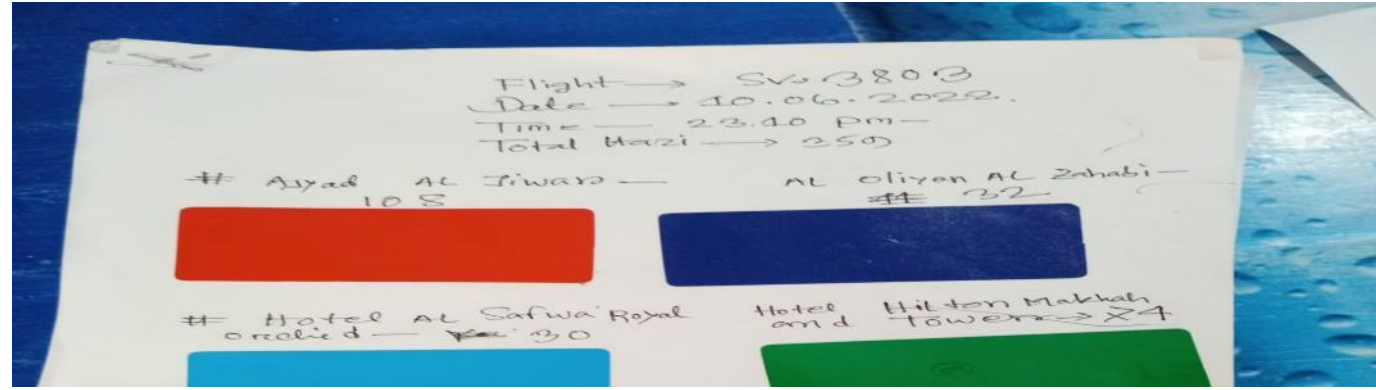 Flight → SV. 3803
Date → 10.06.2022.
Time — 23.10 pm—
Total Hazi → 359
# Ajyad AL Jiwar — 108
AL Oliyan AL Zahabi — 32
# Hotel AL Safwa Royal orchid — 30
Hotel Hilton Makkah and Tower → 74